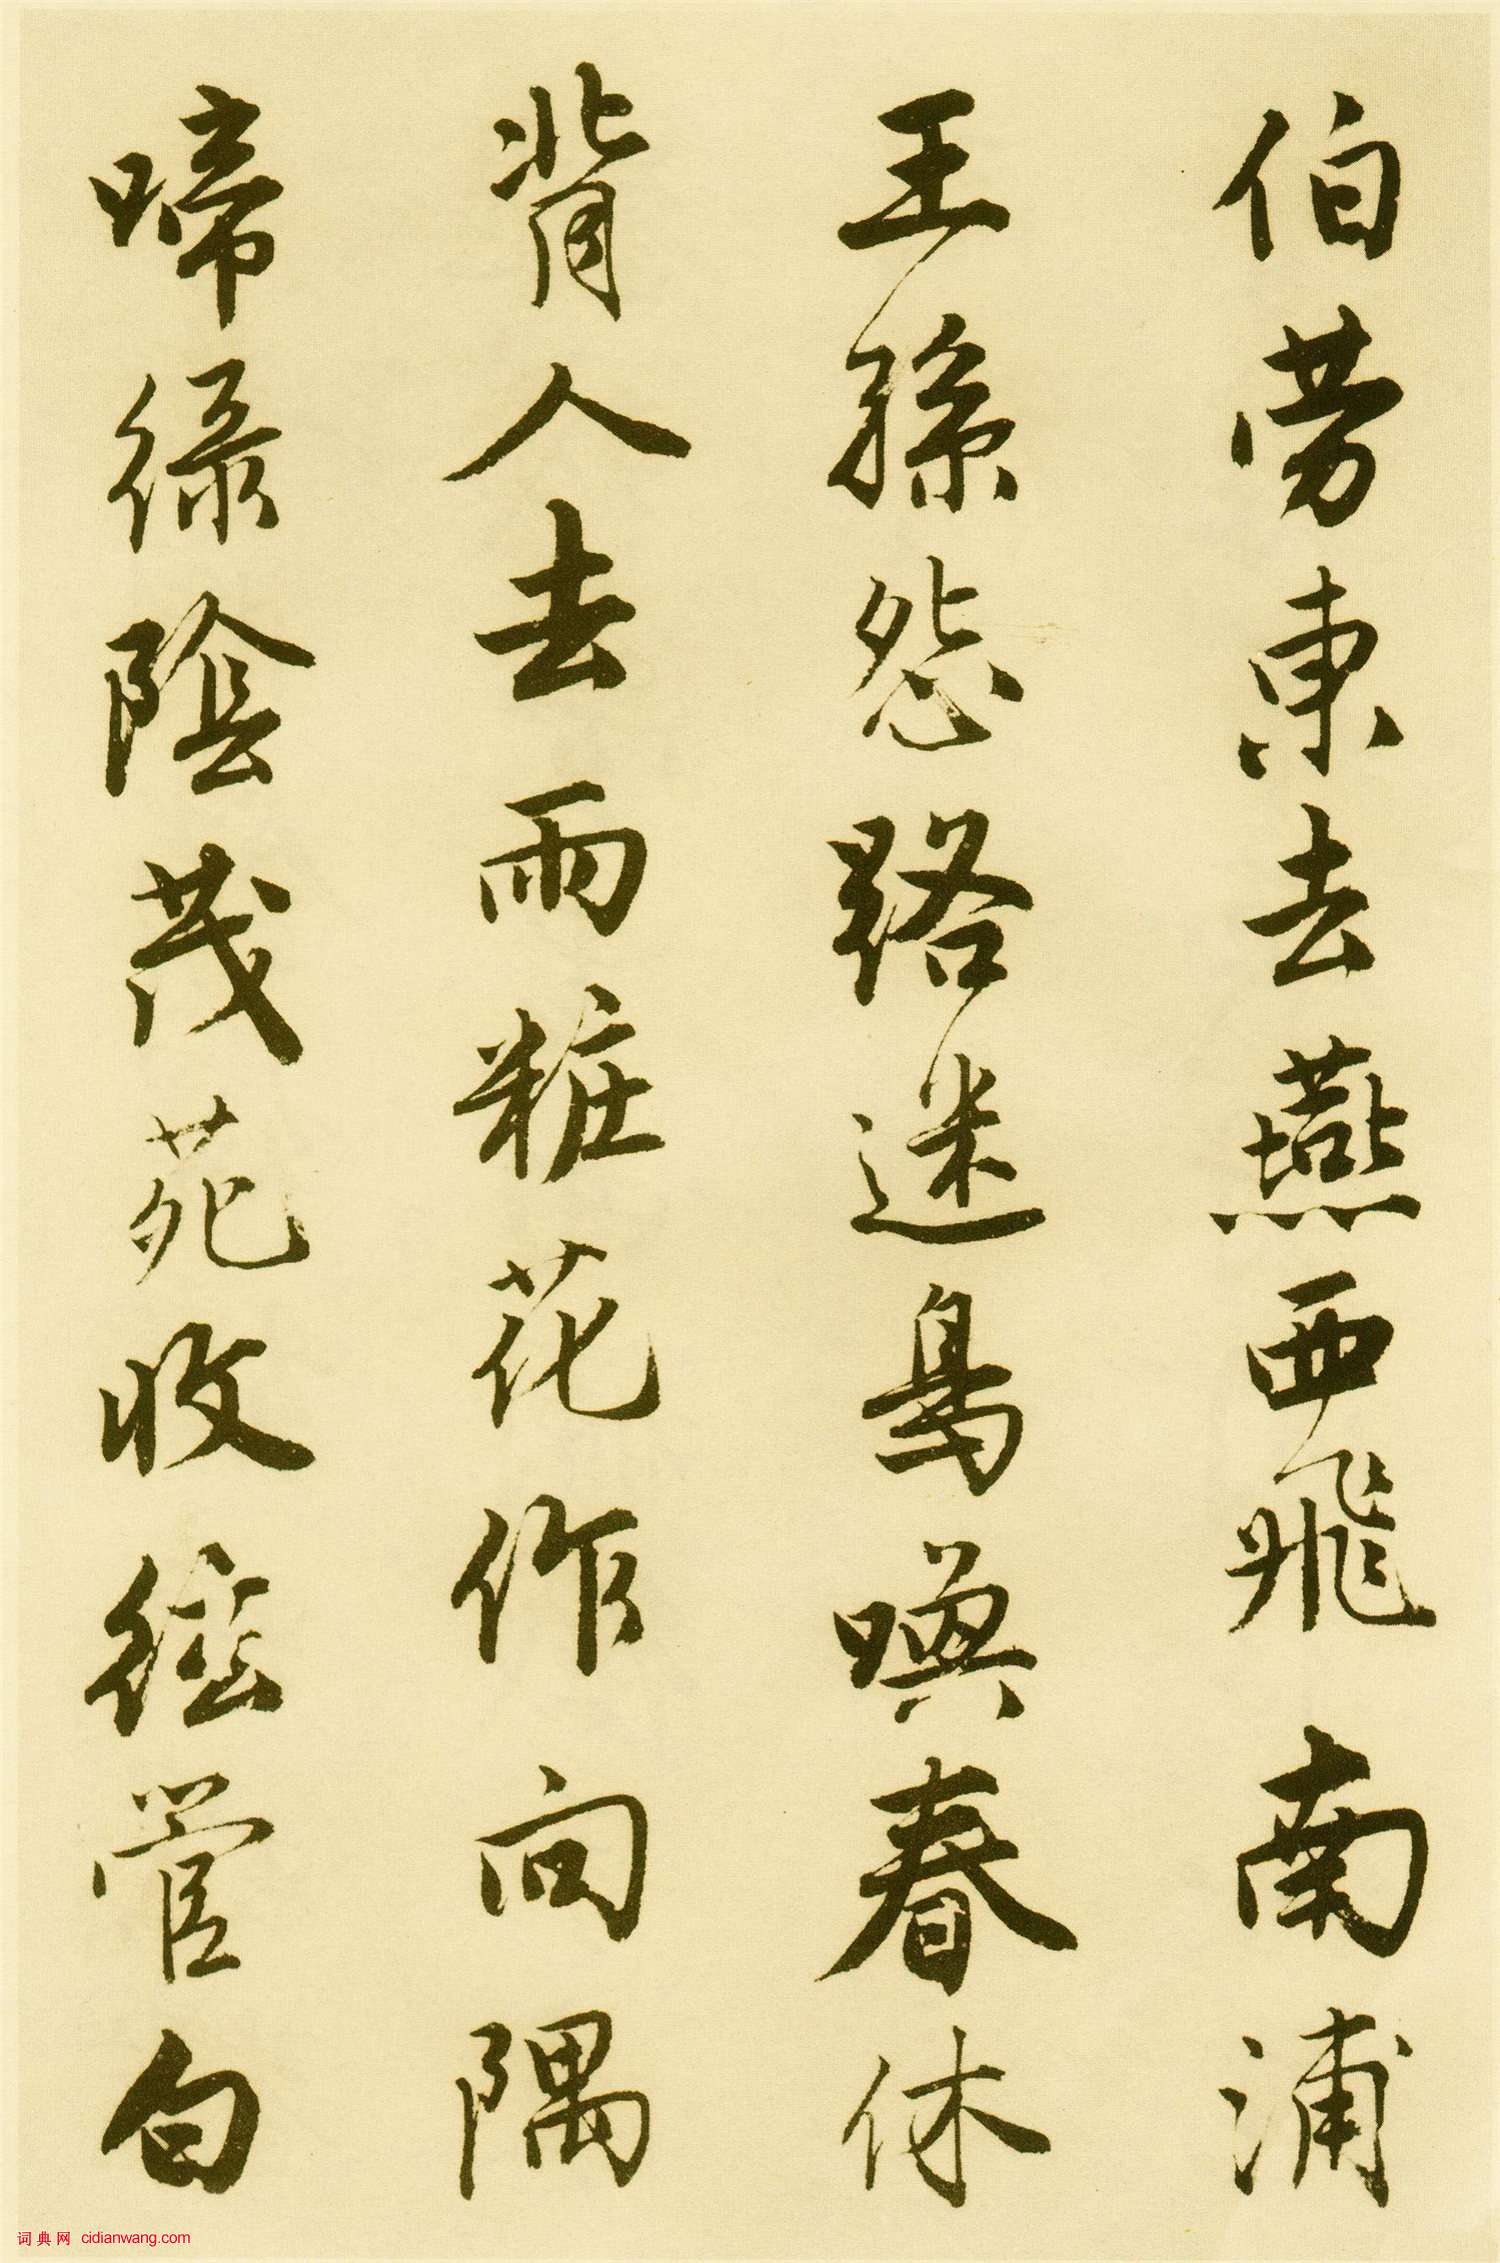 伯劳東去燕西飛南浦
王孫怨路迷鳥喚春休
背人去雨粧花作向隅
啼緑陰茂苑收絃管白
词典网 cidianwang.com